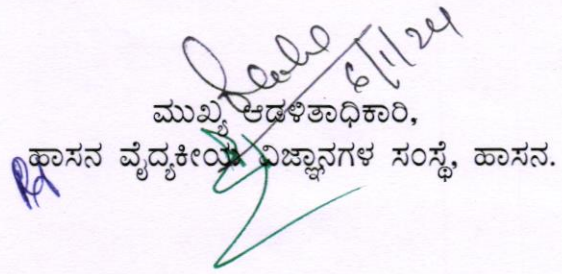 6/1/24
ಮುಖ್ಯ ಆಡಳಿತಾಧಿಕಾರಿ,
ಹಾಸನ ವೈದ್ಯಕೀಯ ವಿಜ್ಞಾನಗಳ ಸಂಸ್ಥೆ, ಹಾಸನ.